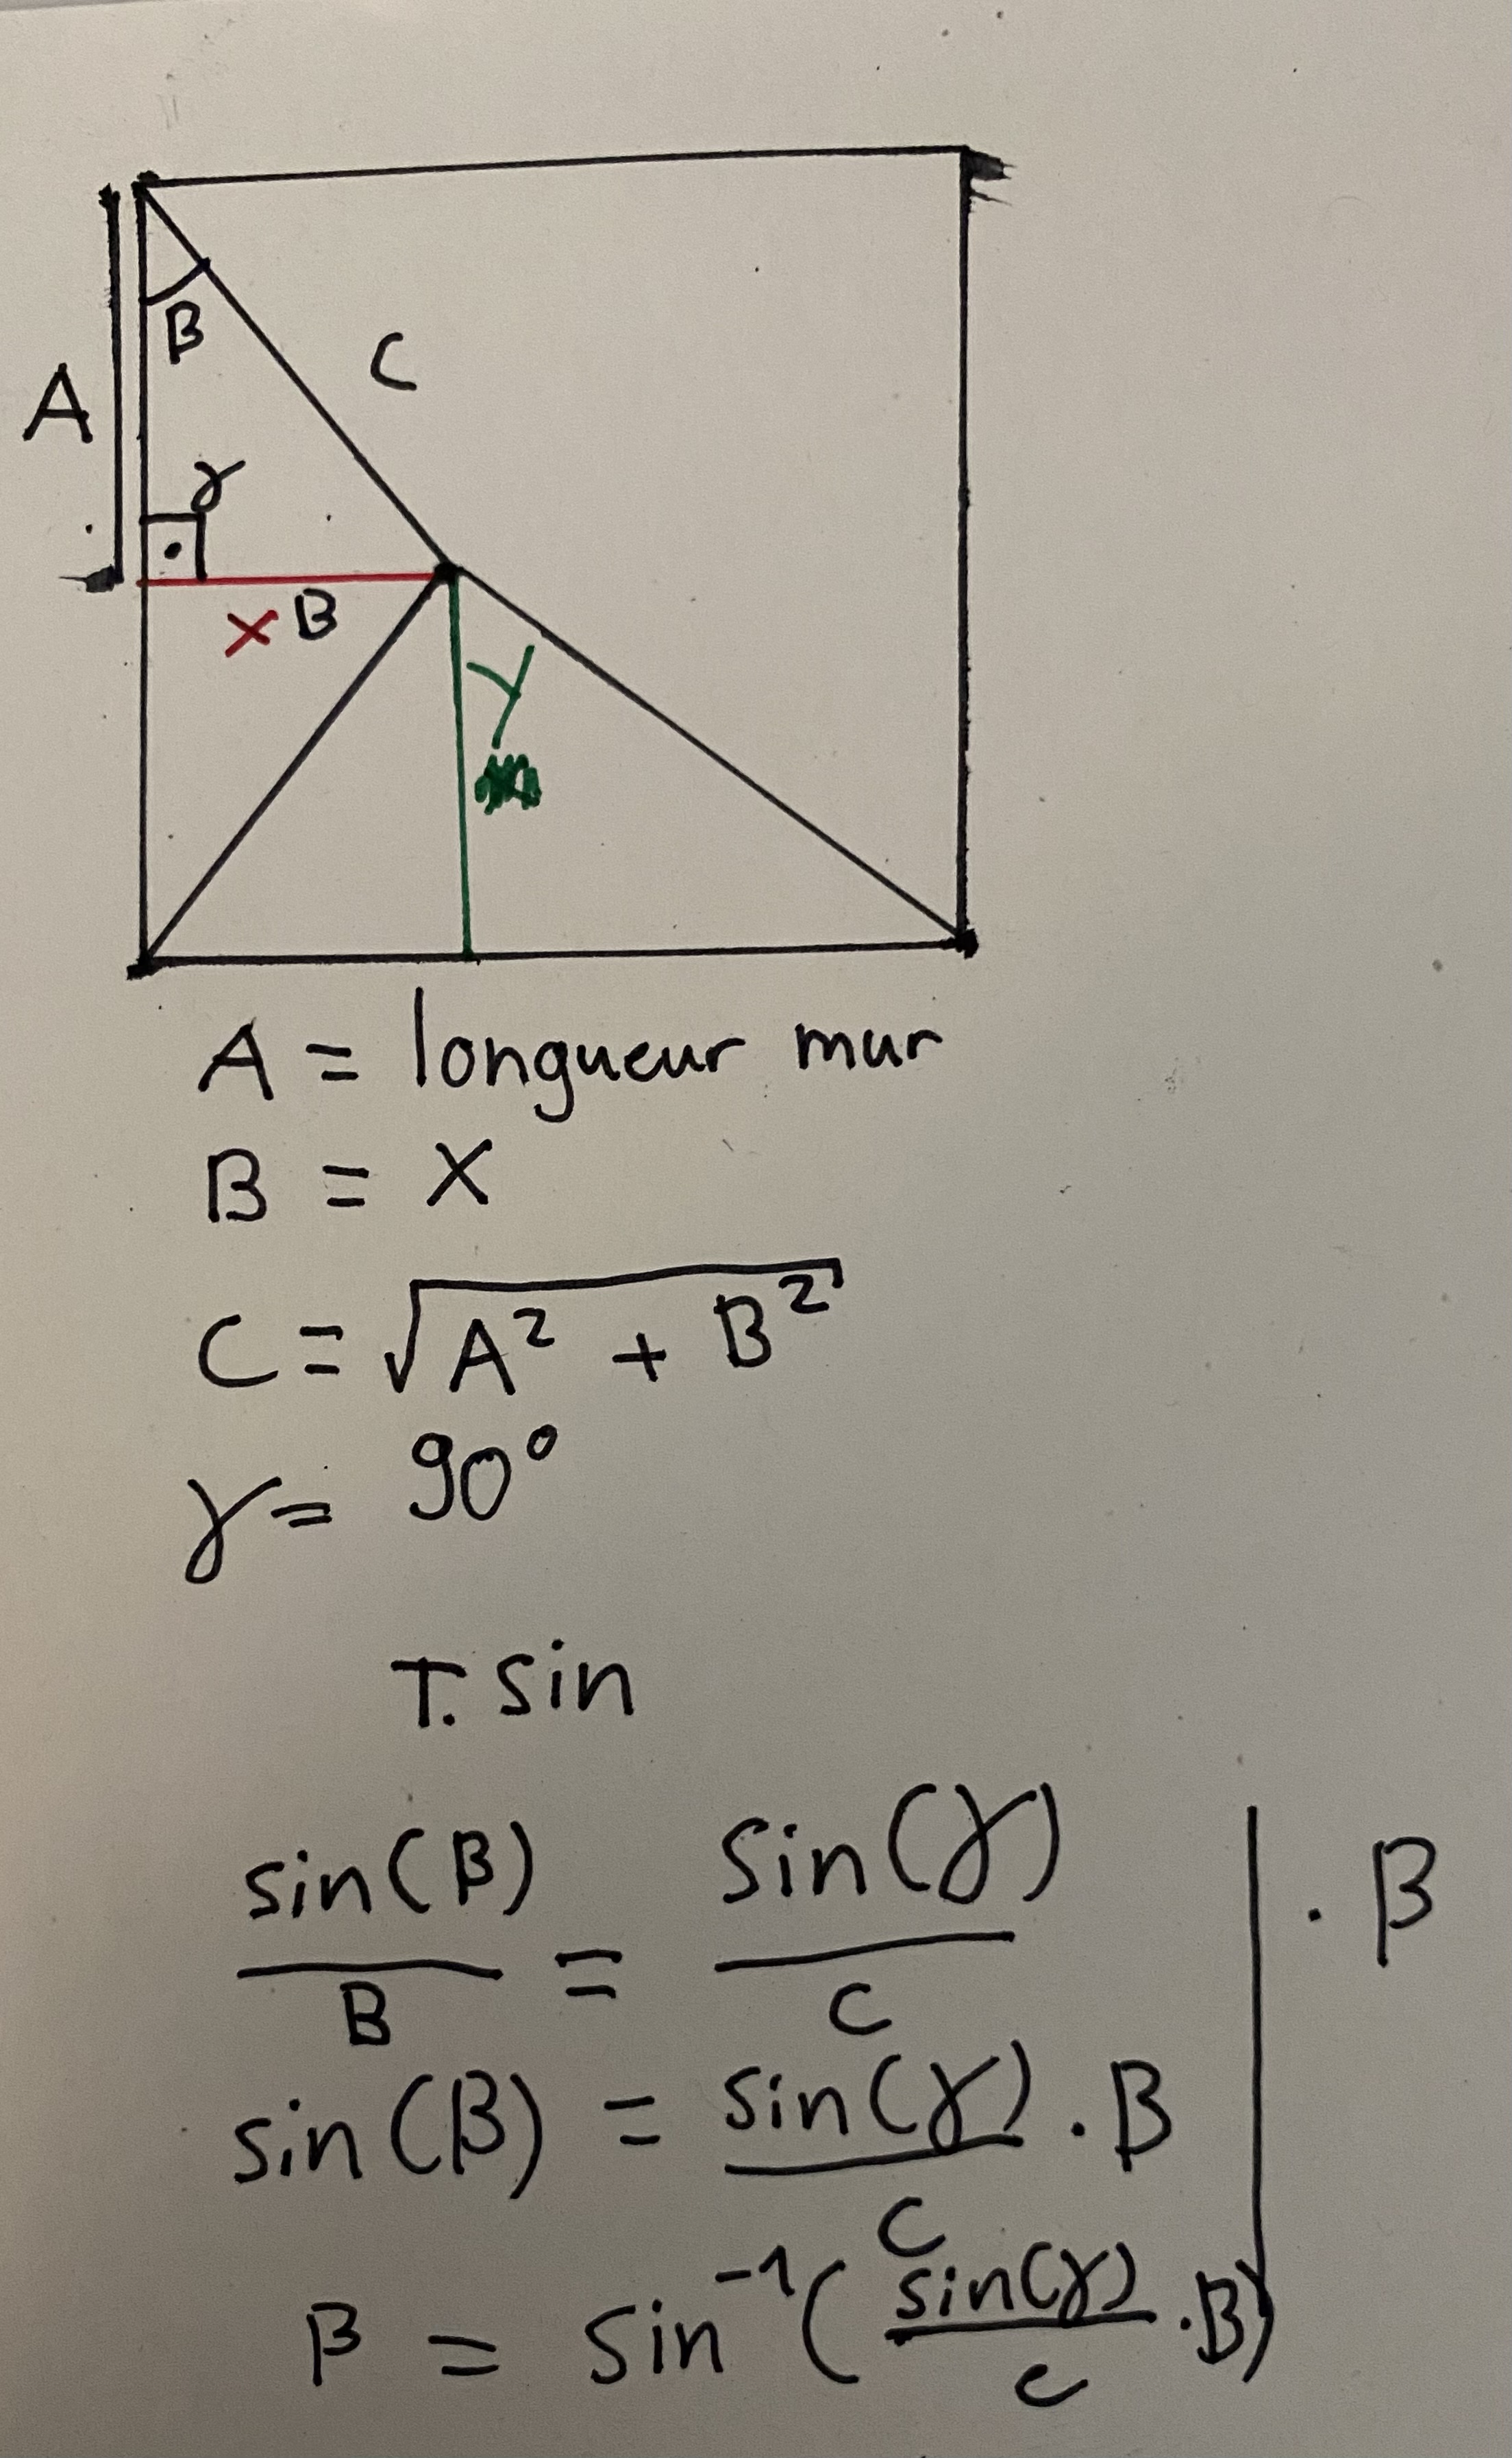 β
C
A
γ
x B
y
A = longueur mur
B = x
C = √A² + B²
γ = 90°
T. sin
sin(β)/B = sin(γ)/C | · B
sin(β) = sin(γ)/C · B
β = sin⁻¹(sin(γ)/C · B)